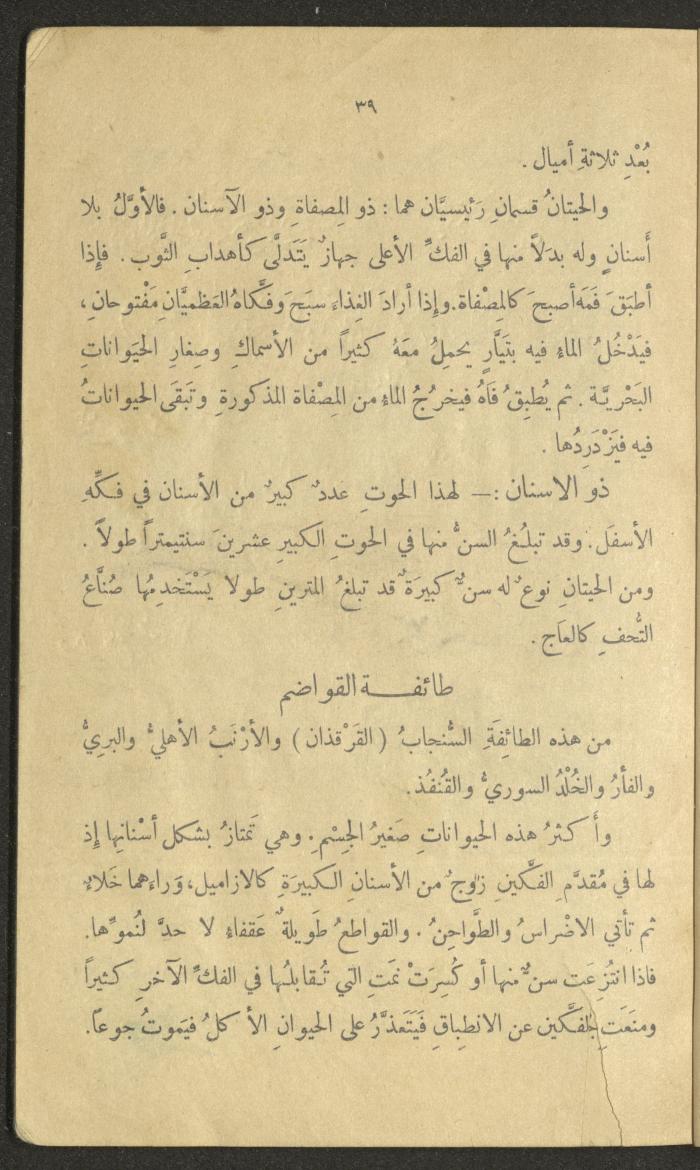 ٣٩
بُعْدِ ثلاثةِ أميال .
والحيتانُ قسمانِ رَئيسيَّان هما : ذو المِصفاةِ وذو الآسنان . فالأوَّلُ بلا
أَسنانٍ وله بدَلاً منها في الفكِّ الأعلى جهازٌ يَتَدلَّى كأهدابِ الثَّوب . فإِذا
أطبَقَ فَمَهُ أصبحَ كالمِصْفاة . وإِذا أرادَ الغِذاءَ سبَحَ وفكَّاهُ العَظميَّانِ مَفْتوحانِ ،
فيَدْخُلُ الماءُ فيه بتَيَّارٍ يحمِلُ معَهُ كثيراً من الأسماكِ وصِغارِ الحيَواناتِ
البَحْريَّة . ثم يُطبِقُ فَاهُ فيخرُجُ الماءُ من المِصْفاة المذكورةِ وتَبقَى الحيواناتُ
فيه فيَزْدَرِدُها .
ذو الاسنان :— لهذا الحوتِ عددٌ كبيرٌ من الأسنان في فكِّهِ
الأسفَل . وقد تبلُغُ السنُّ منها في الحوتِ الكبيرِ عشرينَ سنتيمتراً طولاً .
ومن الحيتانِ نوعٌ له سنٌّ كبيرَةٌ قد تبلغُ المترينِ طولا يَسْتَخدِمُها صُنَّاعُ
التُّحفِ كالعاَج .
طائفـــة القواضم
من هذه الطائِفَةِ السُّنجابُ ( القَرْقذان ) والأرْنَبُ الأهليُّ والبريُّ
والفأرُ والخُلْدُ السوريُّ والقُنفُذ .
وأَكثرُ هذه الحيواناتِ صَغيرُ الجِسْمِ . وهي تَمتازُ بشكل أسْنانِها إِذ
لها في مُقدَّمِ الفكَّينِ زوجٌ من الأسنانِ الكبيرَةِ كالازاميل ، وَراءَهما خَلاءٌ
ثم تأتي الاضْراسُ والطَّواحِنُ . والقواطعُ طَويلةٌ عَقفاءُ لا حدَّ لنُموِّها .
فاذا انتُزِعَت سنٌّ منها أو كُسِرَتْ نمَتِ التي تُقابلُها في الفكِّ الآخرِ كثيراً
ومنَعَتِ الفكَّين عن الانطِباقِ فَيَتَعذَّرُ على الحيوانِ الأكلُ فيَموتُ جوعاً .